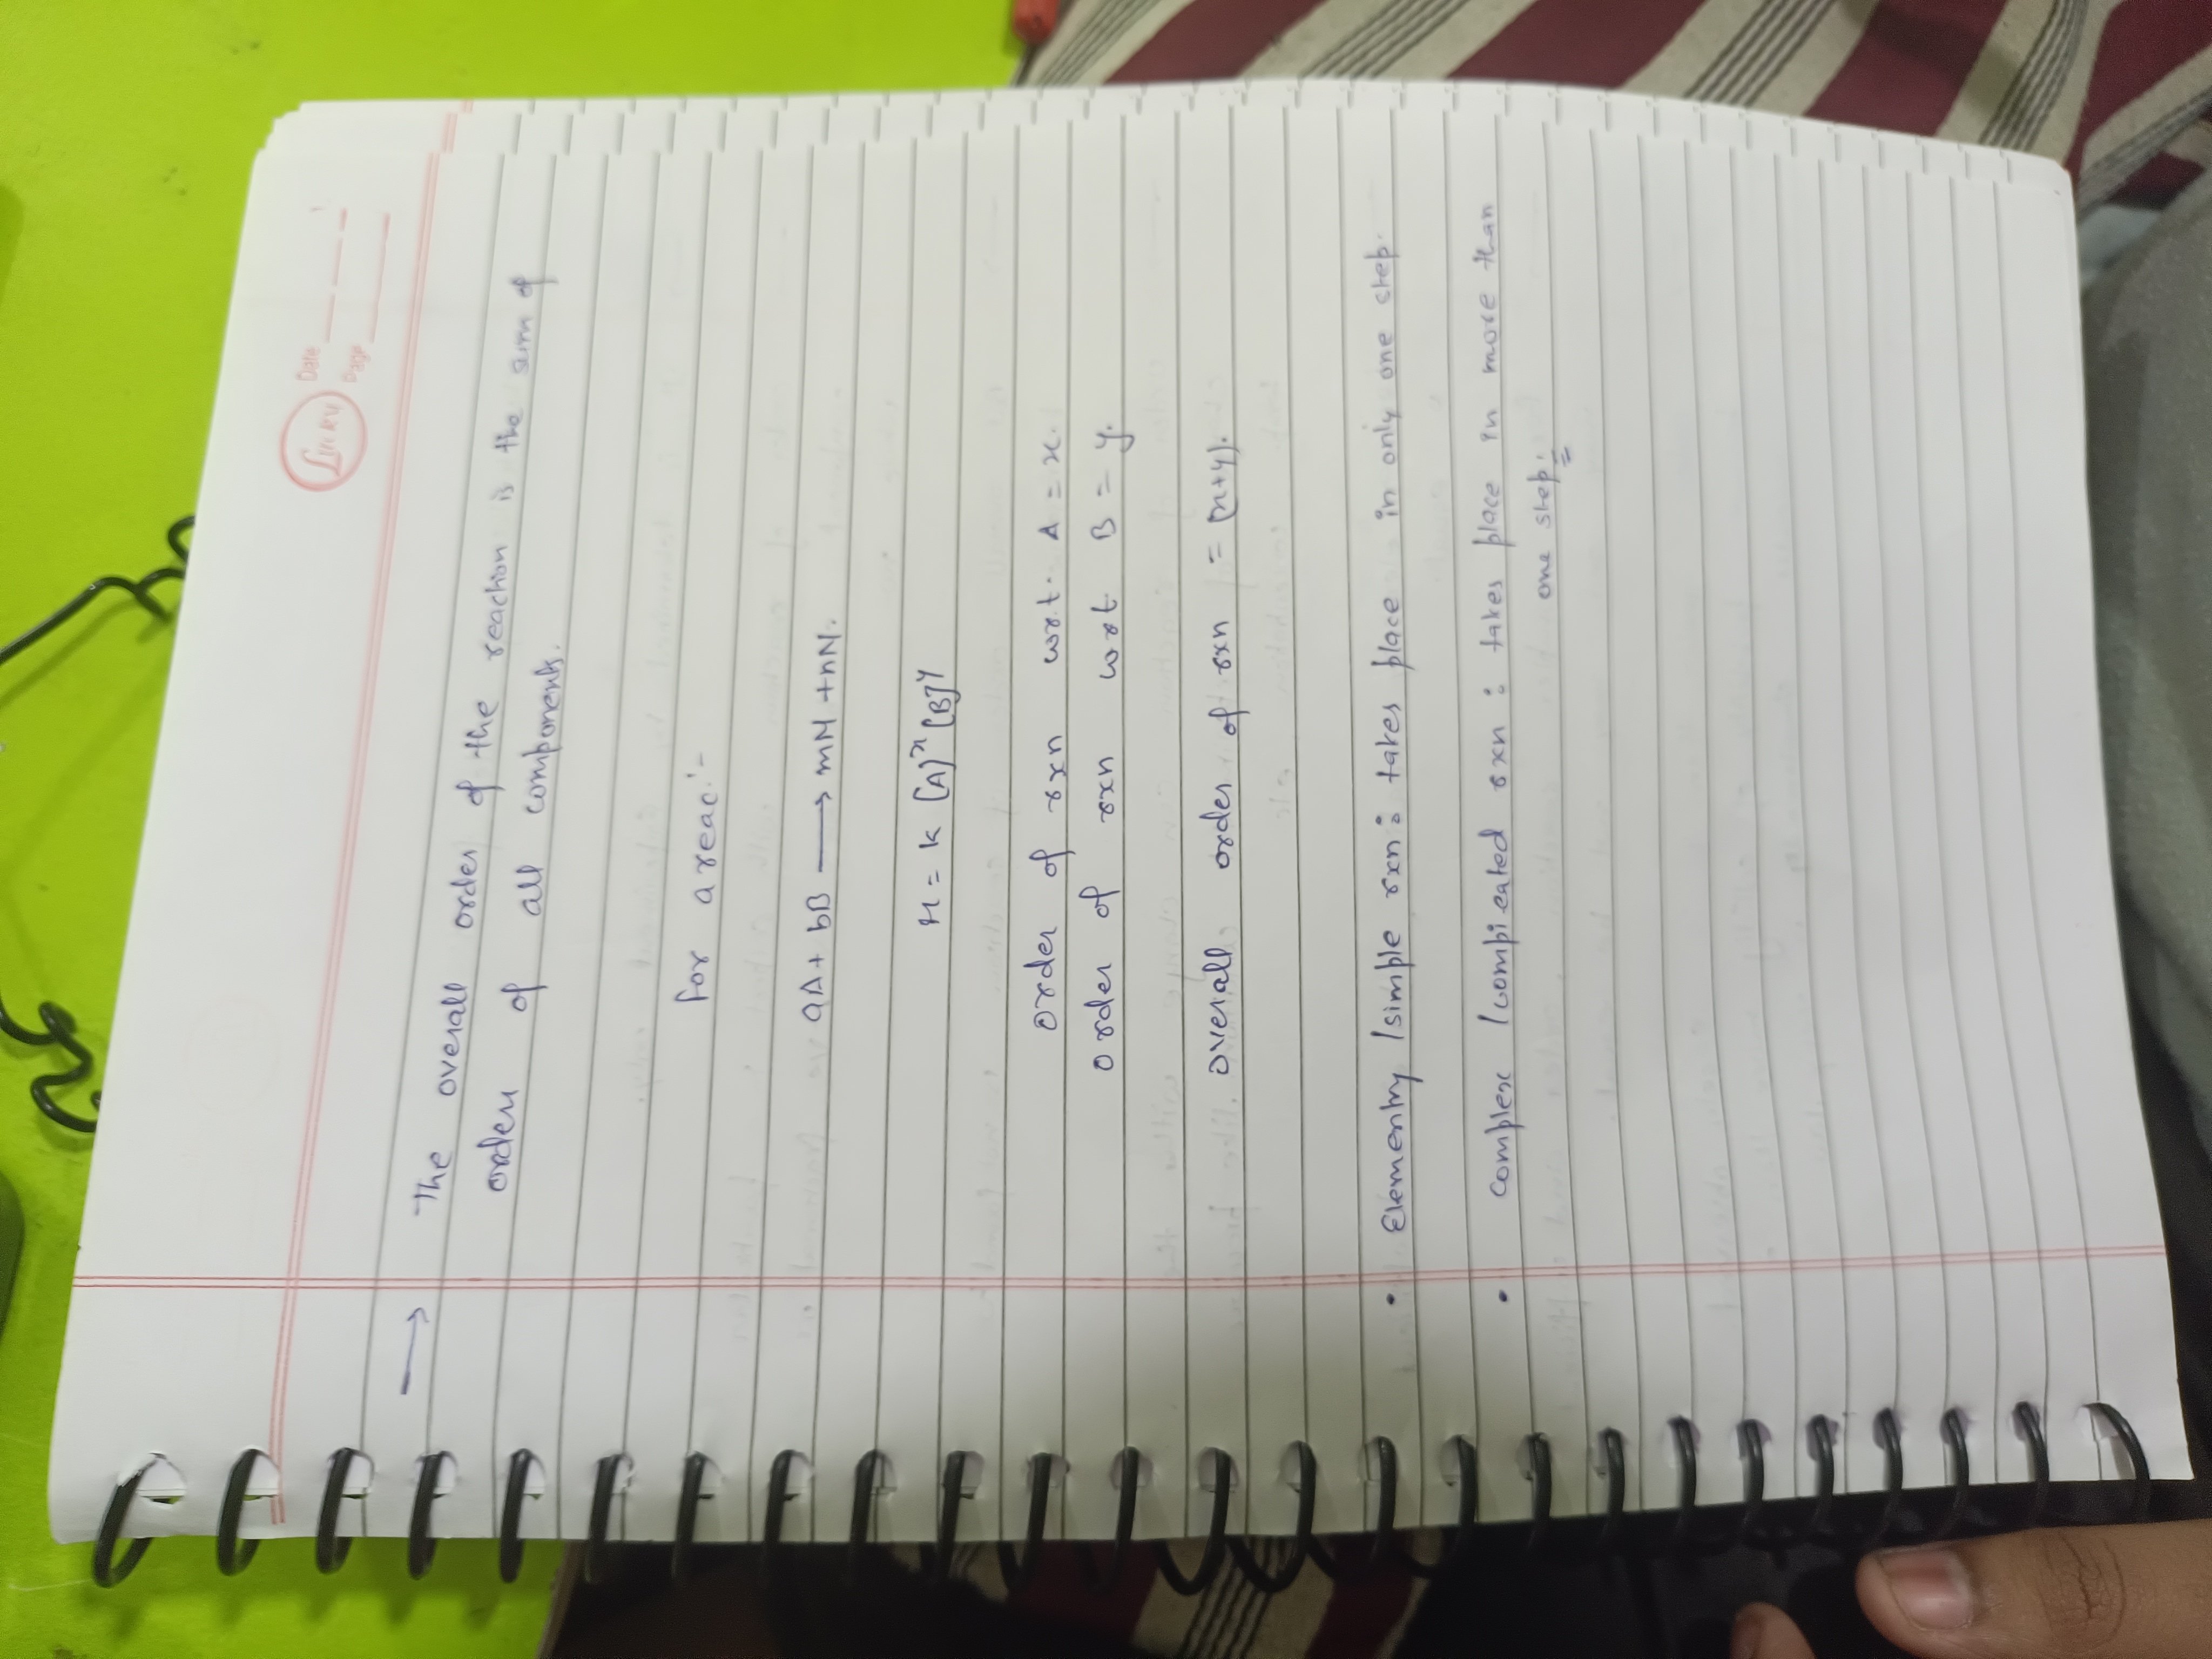 Linker
Date
Page
→ The overall order of the reaction is the sum of
orders of all components.
for a reac:-
aA + bB → mM + nN.
r = k [A]^x [B]^y
order of rxn w.r.t. A = x.
order of rxn wrt B = y.
overall order of rxn = (x+y).
• Elementry / simple rxn : takes place in only one step.
• complex / complicated rxn : takes place in more than
one step.